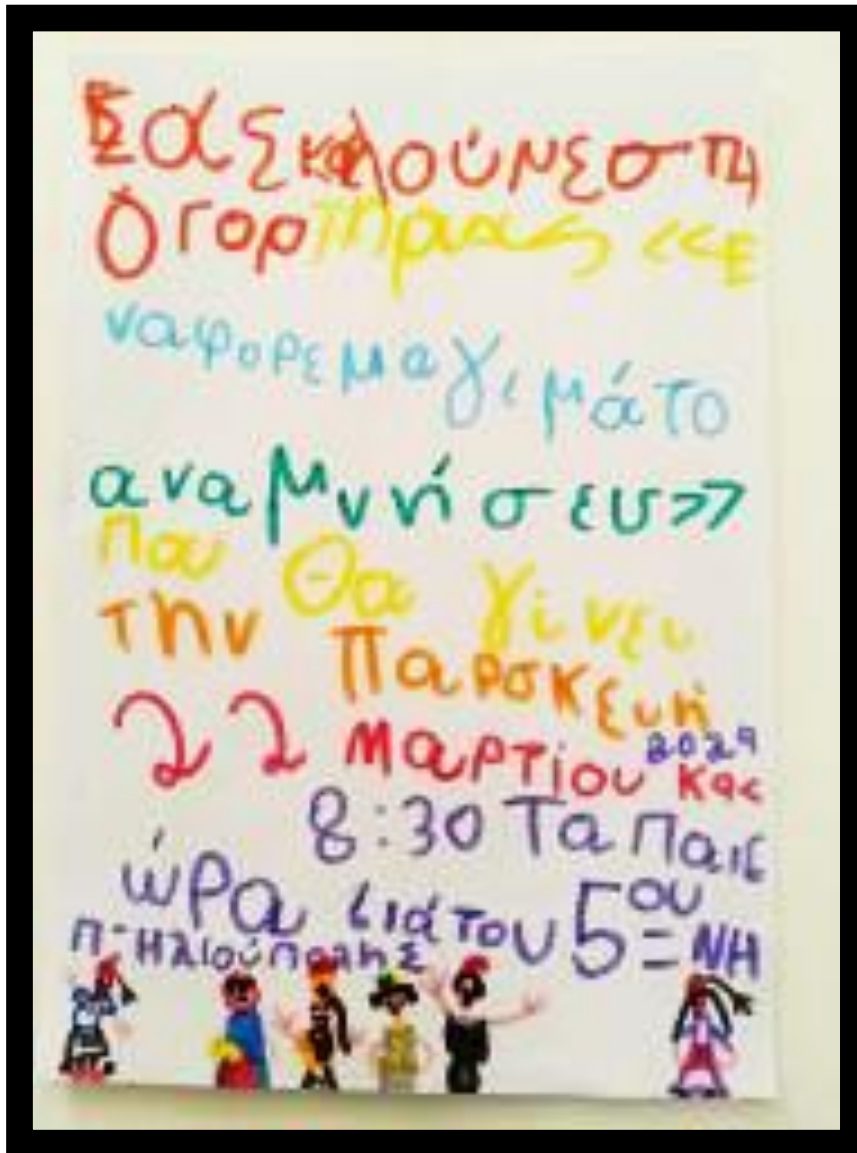 Σας καλούμε στη
Ογορτή μας <<Ε
να φορεμα γιμάτο
αναμνήσευ>>
που θα γίνευ
την Παρσκευή
22 Μαρτίου 2024 και
8:30 Τα παιδ
ώρα ιιά του 5ου ΝΗ
Π-Ηλιούπολης